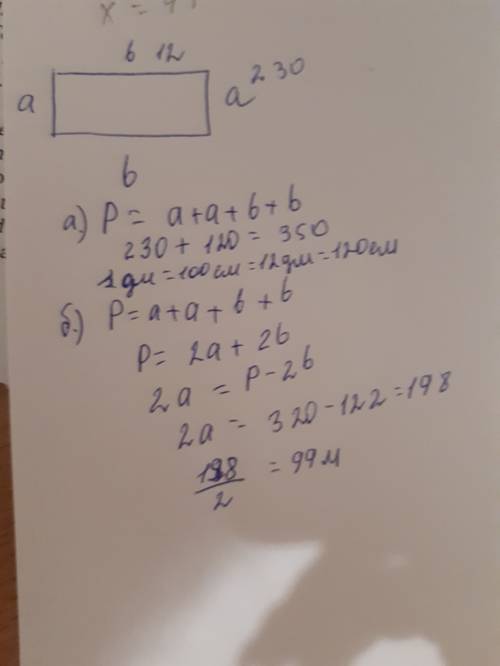 x = 
b 12
a
a 230
b
а.) P = a+a+b+b
230 + 120 = 350
1 дм = 100 см = 12 дм = 120 см
б.) P = a+a+b+b
P = 2a + 2b
2a = P - 2b
2a = 320 - 122 = 198
198/2 = 99 м